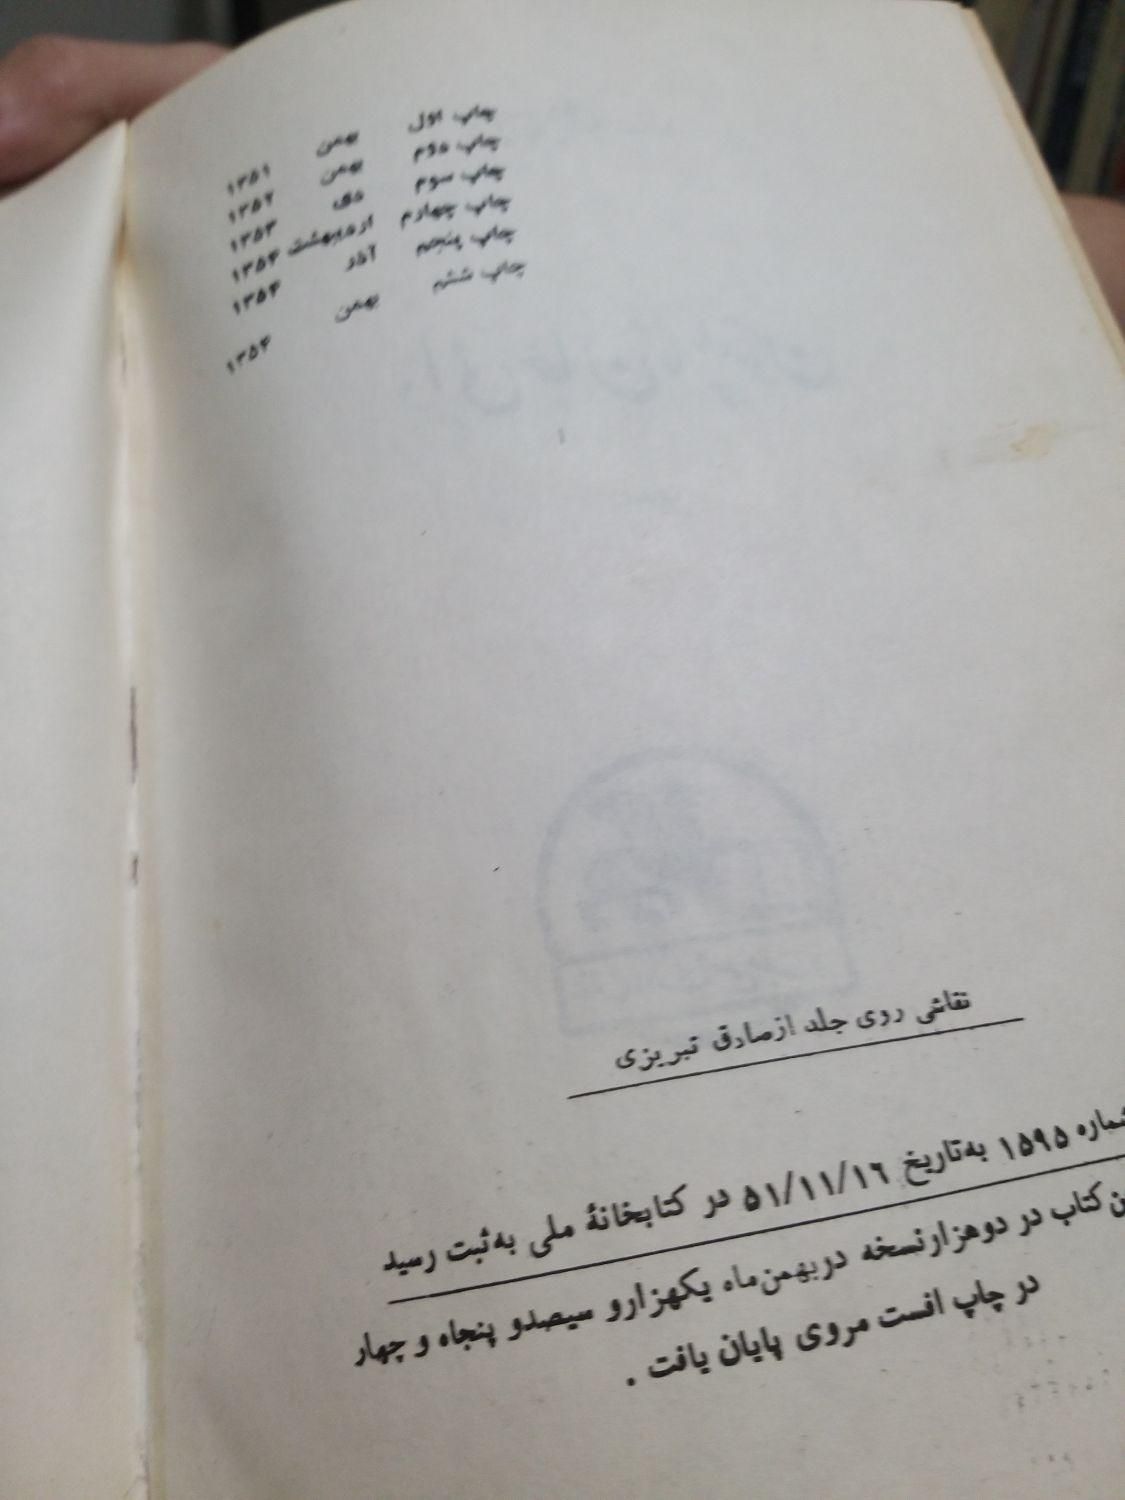 چاپ اول بهمن ۱۳۵۱
چاپ دوم بهمن ۱۳۵۲
چاپ سوم دی ۱۳۵۳
چاپ چهارم اردیبهشت ۱۳۵۴
چاپ پنجم آذر ۱۳۵۴
چاپ ششم بهمن ۱۳۵۴
نقاشی روی جلد از صادق تبریزی
شماره ۱۵۹۵ به‌تاریخ ۵۱/۱۱/۱۶ در کتابخانهٔ ملی به‌ثبت رسید
ن کتاب در دوهزار نسخه در بهمن‌ماه یکهزار و سیصد و پنجاه و چهار
در چاپ افست مروی پایان یافت .